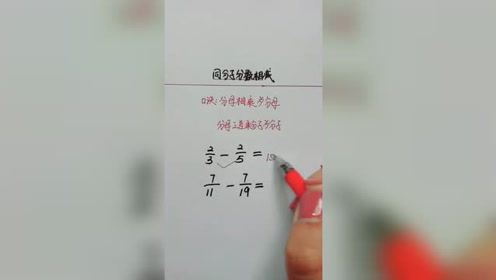 同分子分数相减
口诀:分母相乘作分母
分母之差乘分子作分子
2/3 - 2/5 = 15
7/11 - 7/19 =